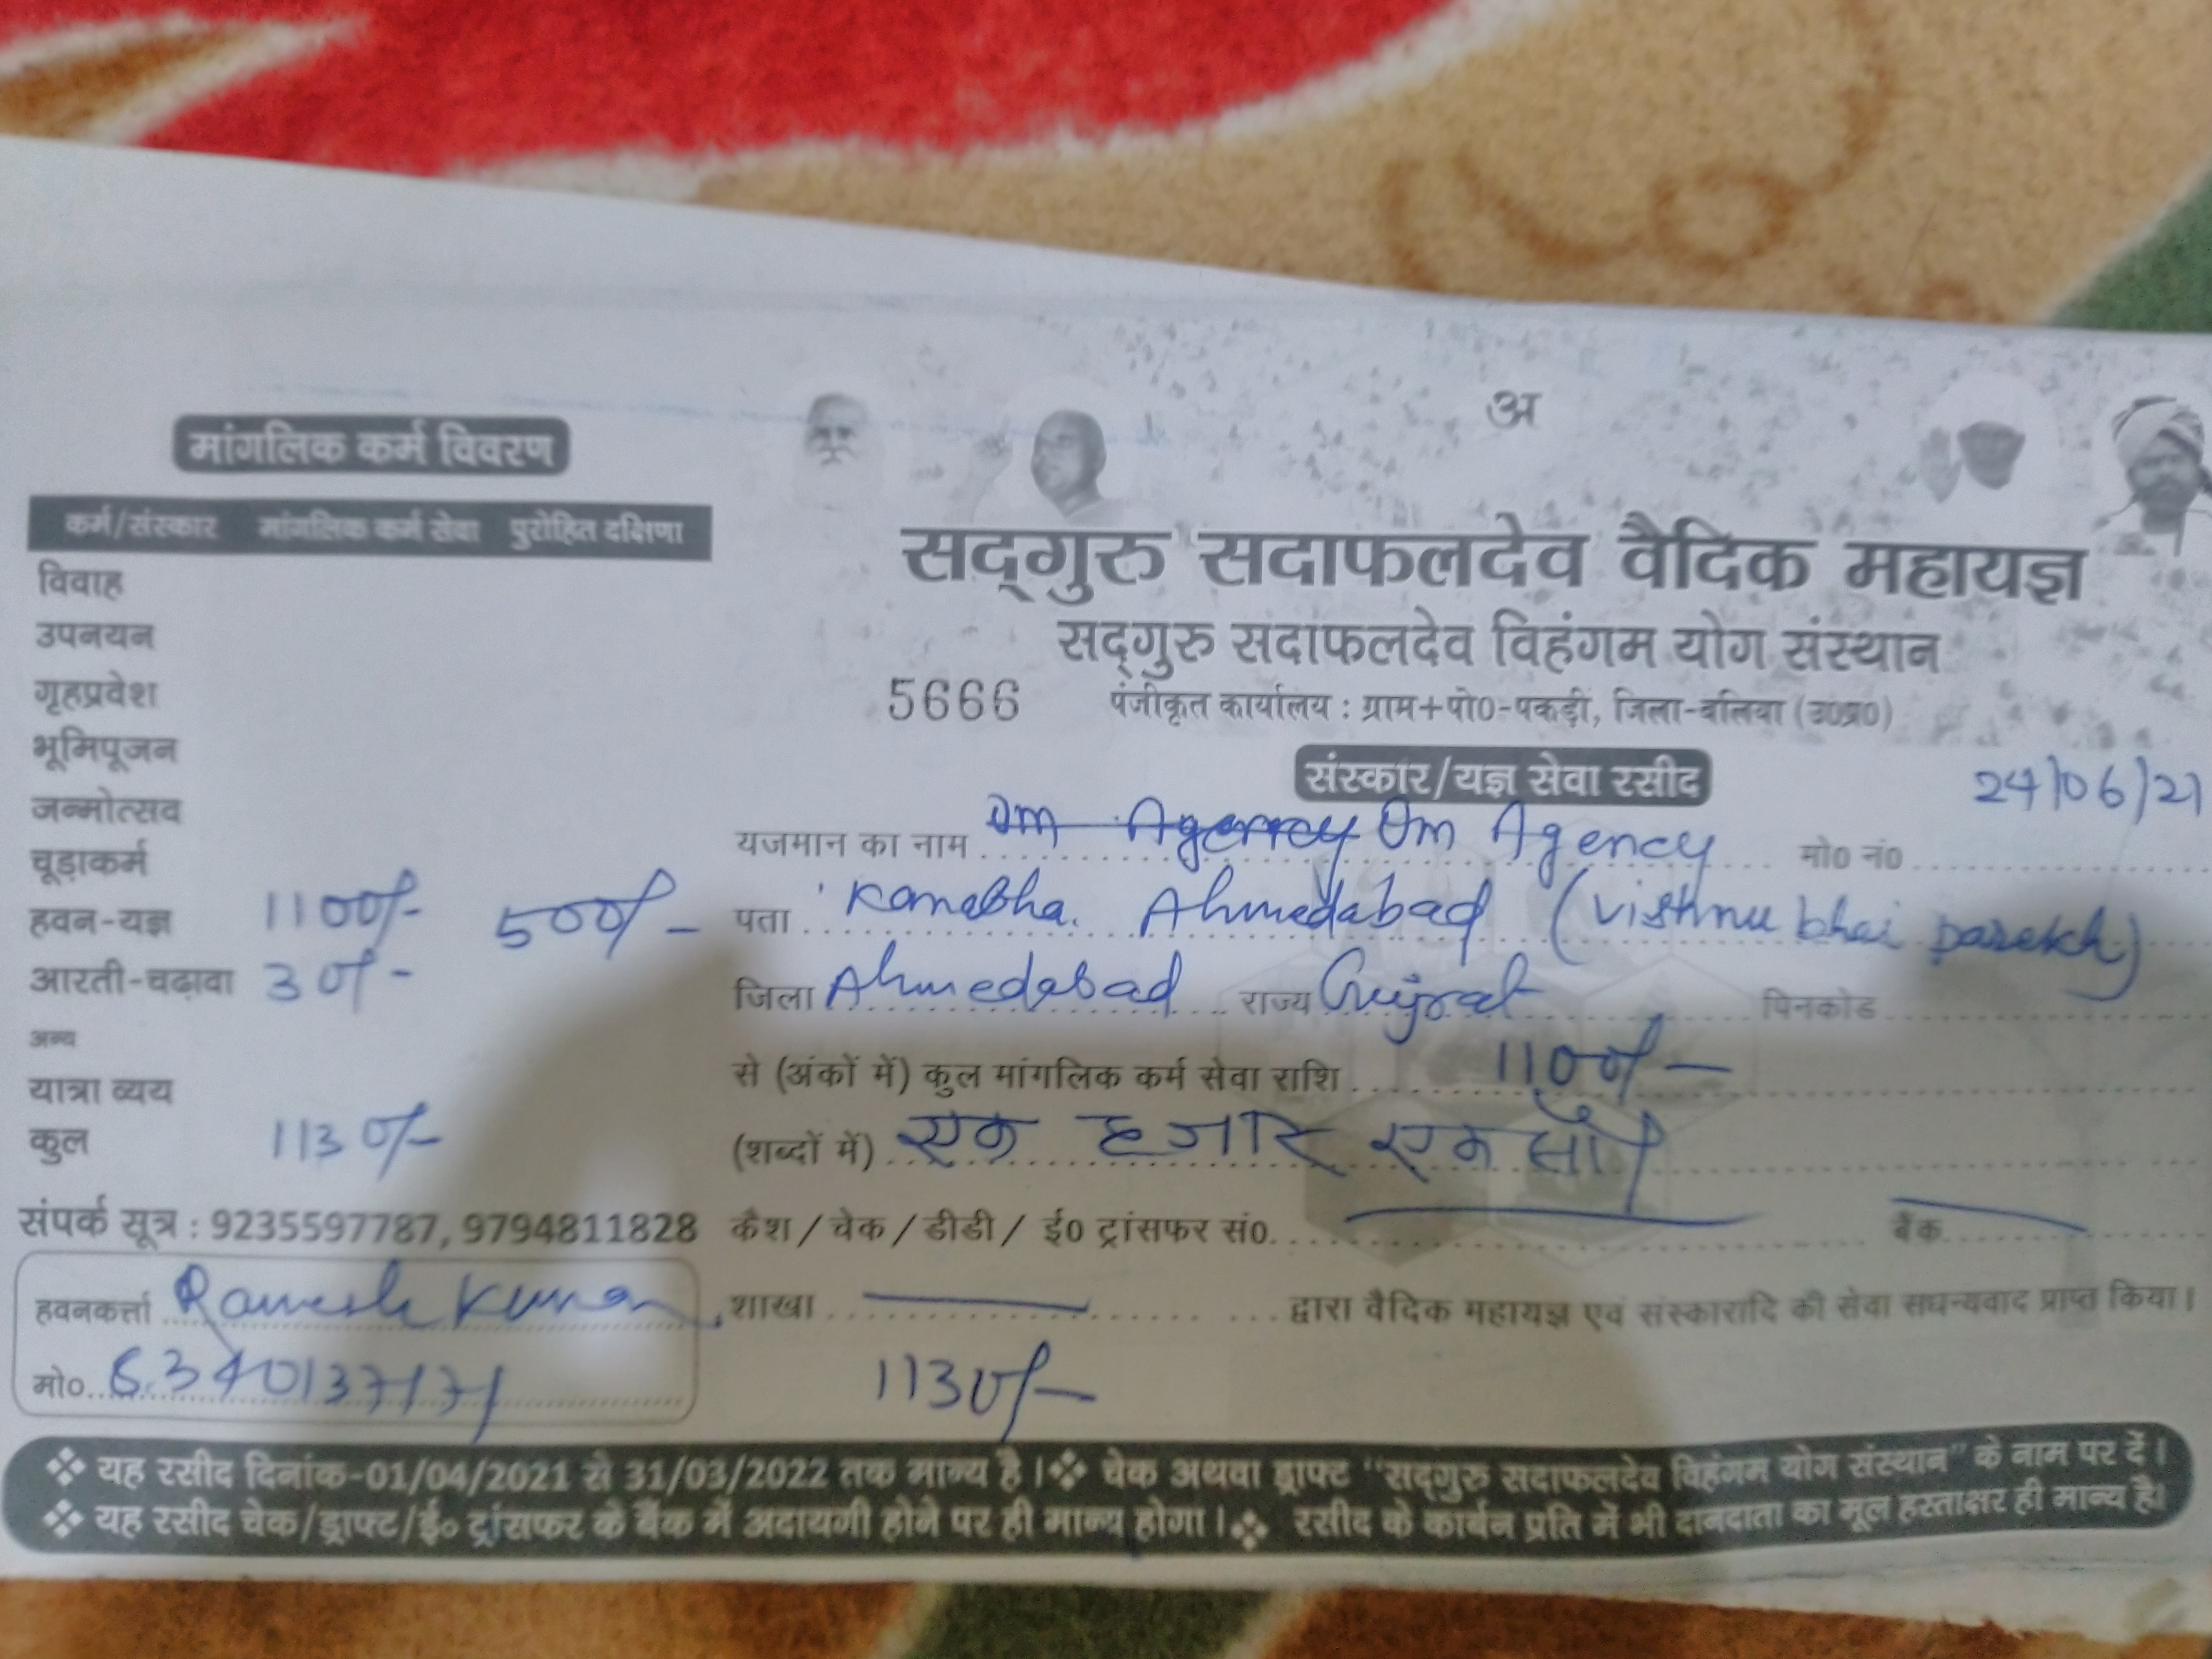 मांगलिक कर्म विवरण
कर्म/संस्कार मांगलिक कर्म सेवा पुरोहित दक्षिणा
विवाह
उपनयन
गृहप्रवेश
भूमिपूजन
जन्मोत्सव
चूड़ाकर्म
हवन-यज्ञ 1100/- 500/-
आरती-चढ़ावा 30/-
अन्य
यात्रा व्यय
कुल 1130/-
संपर्क सूत्र : 9235597787, 9794811828
हवनकर्त्ता Ramesh Kumar
मो०
अ
सद्गुरु सदाफलदेव वैदिक महायज्ञ
सद्गुरु सदाफलदेव विहंगम योग संस्थान
5666 पंजीकृत कार्यालय : ग्राम+पो0-पकड़ी, जिला-बलिया (उ0प्र0)
संस्कार/यज्ञ सेवा रसीद 24/06/21
यजमान का नाम Om Agency Om Agency मो0 नं0
पता Ahmedabad (Vishnu bhai parekh)
जिला Ahmedabad राज्य Gujrat पिनकोड
से (अंकों में) कुल मांगलिक कर्म सेवा राशि 1100/-
(शब्दों में) एक हजार एक सौ
कैश / चेक / डीडी / ई0 ट्रांसफर सं0. बैंक
शाखा द्वारा वैदिक महायज्ञ एवं संस्कारादि की सेवा सधन्यवाद प्राप्त किया।
1130/-
❖ यह रसीद दिनांक-01/04/2021 से 31/03/2022 तक मान्य है। ❖ चेक अथवा ड्राफ्ट "सद्गुरु सदाफलदेव विहंगम योग संस्थान" के नाम पर दें।
❖ यह रसीद चेक/ड्राफ्ट/ई० ट्रांसफर के बैंक में अदायगी होने पर ही मान्य होगा। ❖ रसीद के कार्बन प्रति में भी दानदाता का मूल हस्ताक्षर ही मान्य है।